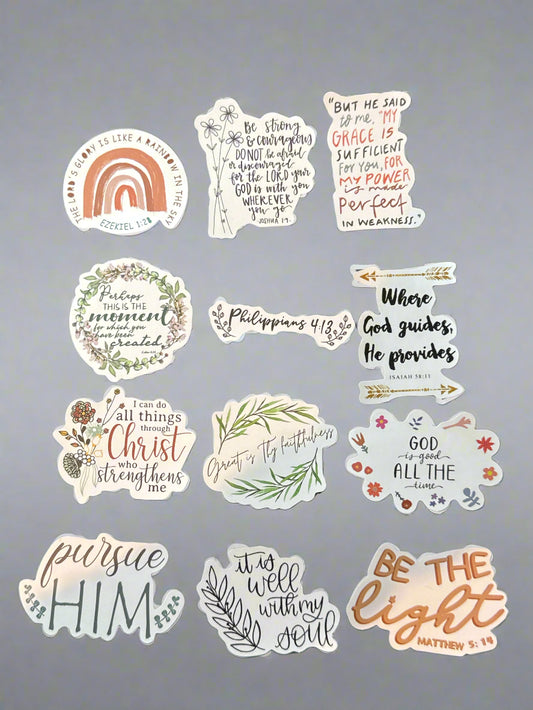 THE LORD'S GLORY IS LIKE A RAINBOW IN THE SKY
EZEKIEL 1:28
Be strong
& courageous
DO NOT be afraid
or discouraged
for the LORD your
GOD is with you
WHEREVER
you go
JOSHUA 1:9
"BUT HE SAID
to me, "MY
GRACE IS
SUFFICIENT
FOR YOU, FOR
MY POWER
is made
PERFECT
IN WEAKNESS."
Perhaps
THIS IS THE
moment
for which you
have been
created
Philippians 4:13
Where
God guides,
He provides
ISAIAH 58:11
I can do
all things
through
Christ
who
strengthens
me
Great is thy faithfulness
GOD
is good
ALL THE
time
pursue
HIM
it is
well
with my
soul
BE THE
light
MATTHEW 5:14